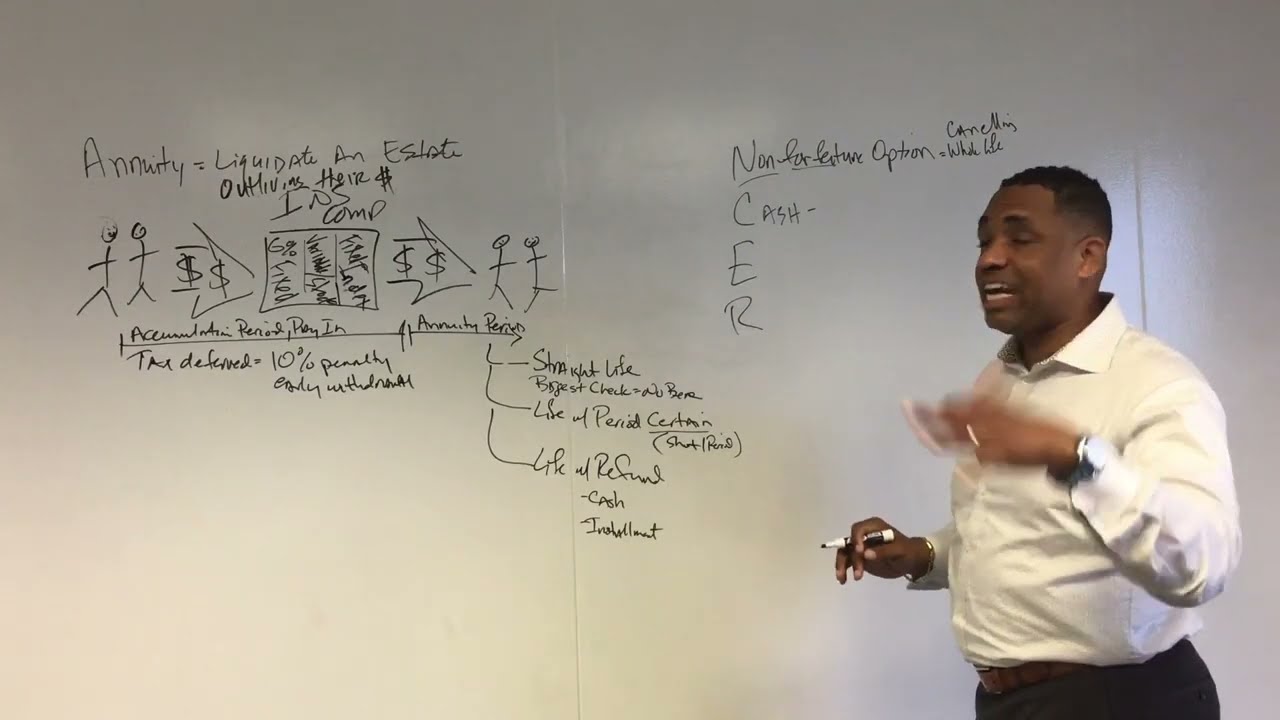 Annuity = Liquidate An Estate
Outliving their $
INS
Comp
$ $
6%
$ $
Accumulation Period, Pay In
Annuity Period
Tax deferred = 10% penalty
early withdrawal
Straight Life
Biggest Check = No Bene
Life w/ Period Certain
(Short/Period)
Life w/ Refund
- Cash
- Installment
Non-forfeiture Option = Cancelling
Whole Life
Cash -
E
R